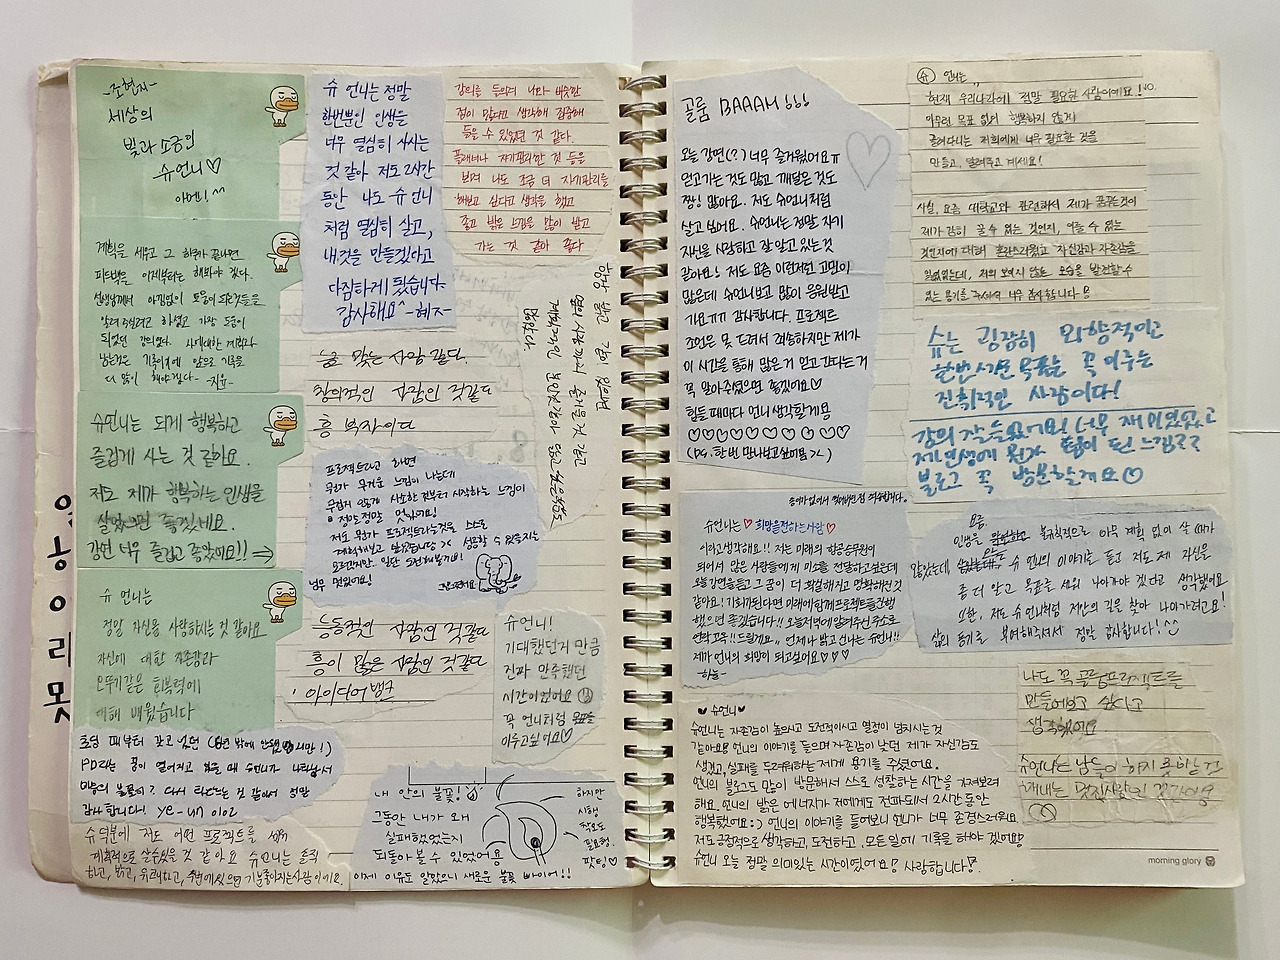 -조현지-
세상의
빛과 소금인
슈언니♡
아멘! ^^
계획을 세우고 그 하루가 끝나면
피드백을 이제부터는 해봐야 겠다.
선생님께서 아낌없이 도움이 되는것들을
알려 주시려고 하셨고 가장 도움이
되었던 강의였다.
더 많이 해야겠다 - 지윤-
슈언니는 되게 행복하고
즐겁게 사는 것 같아요.
저도 제가 행복하는 인생을
살았으면 좋겠네요.
강연 너무 즐겁고 좋았어요!! ⇒
슈 언니는
정말 자신을 사랑하시는 것 같아요
자신에 대한 자존감과
오뚜기같은 회복력에
대해 배웠습니다
초딩 때부터 갖고 있던
PD라는 꿈이 멀어지고 있을 때 슈언니가 나타나서
마음의 불꽃이 다시 타오르는 것 같아서 정말
감사합니다! ye-un 이예
슈덕분에 저도 어떤 프로젝트를 세워
계획적으로 살수있을 것 같아요 슈언니는 솔직
하고, 밝고, 유쾌하고, 주변에있으면 기분좋아지는사람이에요.
슈 언니는 정말
한번뿐인 인생을
너무 열심히 사시는
것 같아 저도 2시간
동안 나도 슈언니
처럼 열심히 살고,
내것을 만들겠다고
다짐하게 됬습니다
감사해요^ -혜지-
강의를 들으며 나와 비슷한
점이 많다고 생각해 집중해
들을 수 있었던 것 같다.
플래너나 자기관리한 것 등을
보며 나도 조금 더 자기관리를
해보고 싶다고 생각을 했고
좋고 밝은 느낌을 많이 받고
가는 것 같아 좋다
늘 맞는 사람 같다.
창의적인 사람인 것같다
흥 부자이다
항상 밝고
계획적인 본인
프로젝트라고 하면
무언가 무거운 느낌이 나는데
무겁지 않게 사소한 것부터 시작하는 느낌이
정말정말 멋있어요!
저도 무언가 프로젝트라는것을 스스로
계획해보고 싶어졌습니당 >< 성공할 수 있을지는
모르겠지만, 일단 도전해볼게요!
너무 멋있어요!
능동적인 사람인 것같다
흥이 많은 사람인 것같다
아이디어뱅크
슈언니!
기대했던거 만큼
진짜 만족했던
시간이었어요
꼭 언니처럼 모든걸
이루고싶어요♡
내 안의 불꽃!
그동안 내가 왜
실패했었는지
되돌아 볼 수 있었어용
이제 이유도 알았으니 새로운 불꽃 빠이어!!
하지만
시행
착오도
필요행.
팟팅♡
골룸 BAAAM !!!
오늘 강연(?) 너무 즐거웠어요ㅠ
얻고가는 것도 많고 깨달은 것도
짱! 많아요. 저도 슈언니처럼
살고 싶어요. 슈언니는 정말 자기
자신을 사랑하고 잘 알고 있는것
같아요! 저도 요즘 이런저런 고민이
많은데 슈언니보고 많이 응원받고
가요ㄲㄲ 감사합니다. 프로젝트
조언은 못 드려서 죄송하지만 제가
이 시간을 통해 많은 거 얻고 간다는 거
꼭 알아주셨으면 좋겠어요♡
힘들 때마다 언니 생각할게용
♡♡♡♡♡♡♡♡♡♡
(P.S. 한번 만나보고싶어용 ><)
슈 언니는
현재 우리나라에 정말 필요한 사람이에요!
아무런 목표 없이 행복하지 않게
끌려다니는 저희에게 너무 필요한 것을
만들고, 알려주고 계세요!
사실, 요즘 대학교와 관련해서 제가 꿈꾸는것이
제가 감히 꿀 수 없는 것인지, 이룰 수 없는
것인지에 대해 혼란스러웠고 자신감과 자존감을
잃었었는데, 저의 또다시 않는 모습을 발견할수
있는 용기를 주셔서 너무 감사합니다
슈는 굉장히 외향적이고
한번 세운 목표는 꼭 이루는
진취적인 사람이다!
강의 잘 들었어요! 너무 재미있었고
제 인생에 뭔가 팁이 된 느낌??
블로그 꼭 방문할게요☺
종이가 없어서 옆에애한테 여쭤봤다.
슈언니는 ♡ 희망을전하는사람♡
이라고생각해요!! 저는 미래의 항공승무원이
되어서 많은 사람들에게 미소를 전달하고싶은데
오늘강연을듣고 그 꿈이 더 확실해지고 명확해진것
같아요! 기회가된다면 미래에함께프로젝트를진행
했으면 좋겠습니다!! 오늘저녁에 알려주신 주소로
연락 꼬옥!! 드릴게요.. 언제나 밝고 신나는 슈언니!!
제가 언니의 희망이 되고싶어요♡♡♡
-하늘-
요즘
인생을 불규칙적으로 아무 계획 없이 살 때가
많았는데 슈 언니의 이야기를 듣고 저도 제 자신을
좀 더 알고 목표를 세워 나아가야 겠다고 생각했어요
또한, 저도 슈언니처럼 제간의 길을 찾아 나아가려고요!
삶의 동기를 부여해주셔서 정말 감사합니다! ^^
나도 꼭 골룸프로젝트를
만들어보고 싶다고
생각했어요
슈언니는 남들이 하지 못하는 걸
해내는 멋진사람인 것같아용
♥슈언니♥
슈언니는 자존감이 높으시고 도전적이시고 열정이 넘치시는 것
같아요! 언니의 이야기를 들으며 자존감이 낮던 제가 자신감도
생겼고, 실패를 두려워하는 저에게 용기를 주셨어요.
언니의 블로그도 많이 방문해서 스스로 성찰하는 시간을 가져보려
해요. 언니의 밝은 에너지가 저에게도 전파되서 2시간 동안
행복했어요:) 언니의 이야기를 들어보니 언니가 너무 존경스러워요
저도 긍정적으로 생각하고, 도전하고, 모든 일에 기록을 해야 겠어요!
슈언니 오늘 정말 의미있는 시간이였어요! 사랑합니다!
morning glory